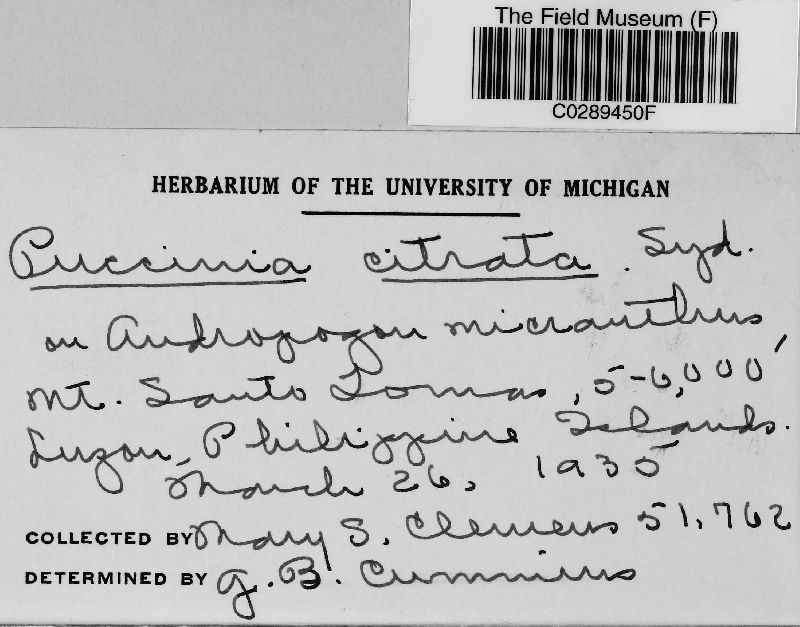 The Field Museum (F)
C0289450F
HERBARIUM OF THE UNIVERSITY OF MICHIGAN
Puccinia citrata. Syd.
on Andropogon micranthus
Mt. Santo Tomas, 5-6,000'
Luzon, Philippine Islands.
March 26, 1935
COLLECTED BY Mary S. Clemens 51,762
DETERMINED BY G. B. Cummins